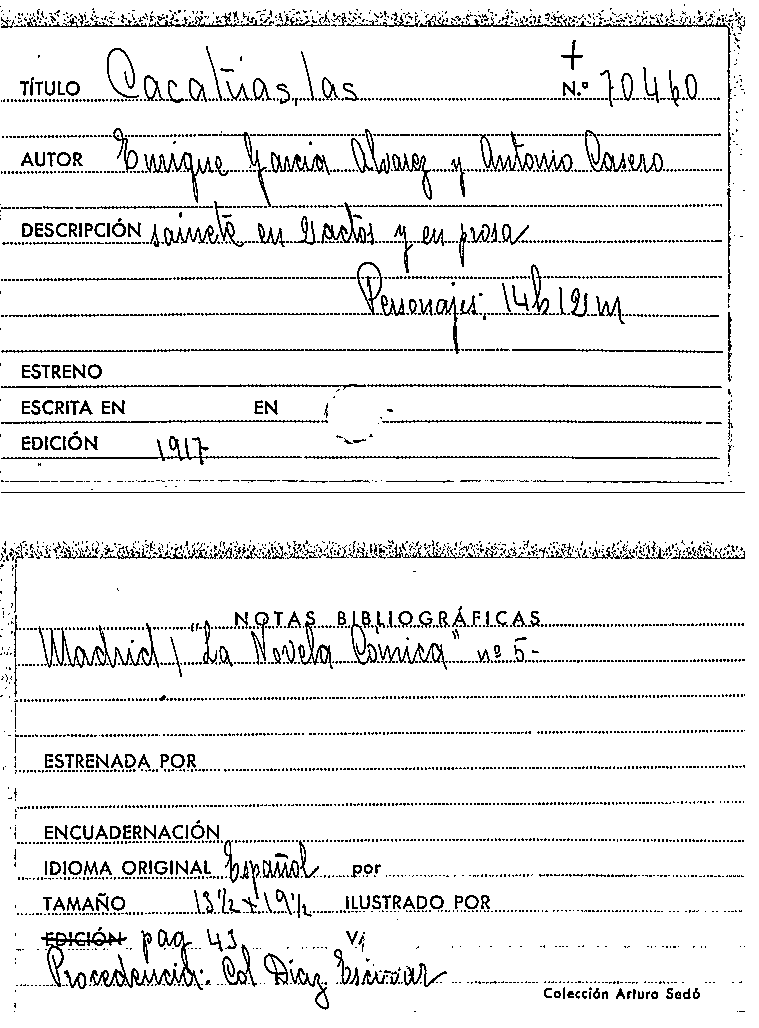 +
TÍTULO Cacatúas, las N.º 70460
AUTOR Enrique Garcia Alvarez y Antonio Casero
DESCRIPCIÓN sainete en 2 actos y en prosa
Personajes: 14h 12m
ESTRENO
ESCRITA EN EN
EDICIÓN 1917
NOTAS BIBLIOGRÁFICAS
Madrid / "La Novela Cómica" nº 5-
ESTRENADA POR
ENCUADERNACIÓN
IDIOMA ORIGINAL Español por
TAMAÑO 13½ x 19½ ILUSTRADO POR
EDICIÓN pag 43
Procedencia: Col Diaz Escovar
Colección Arturo Sedó